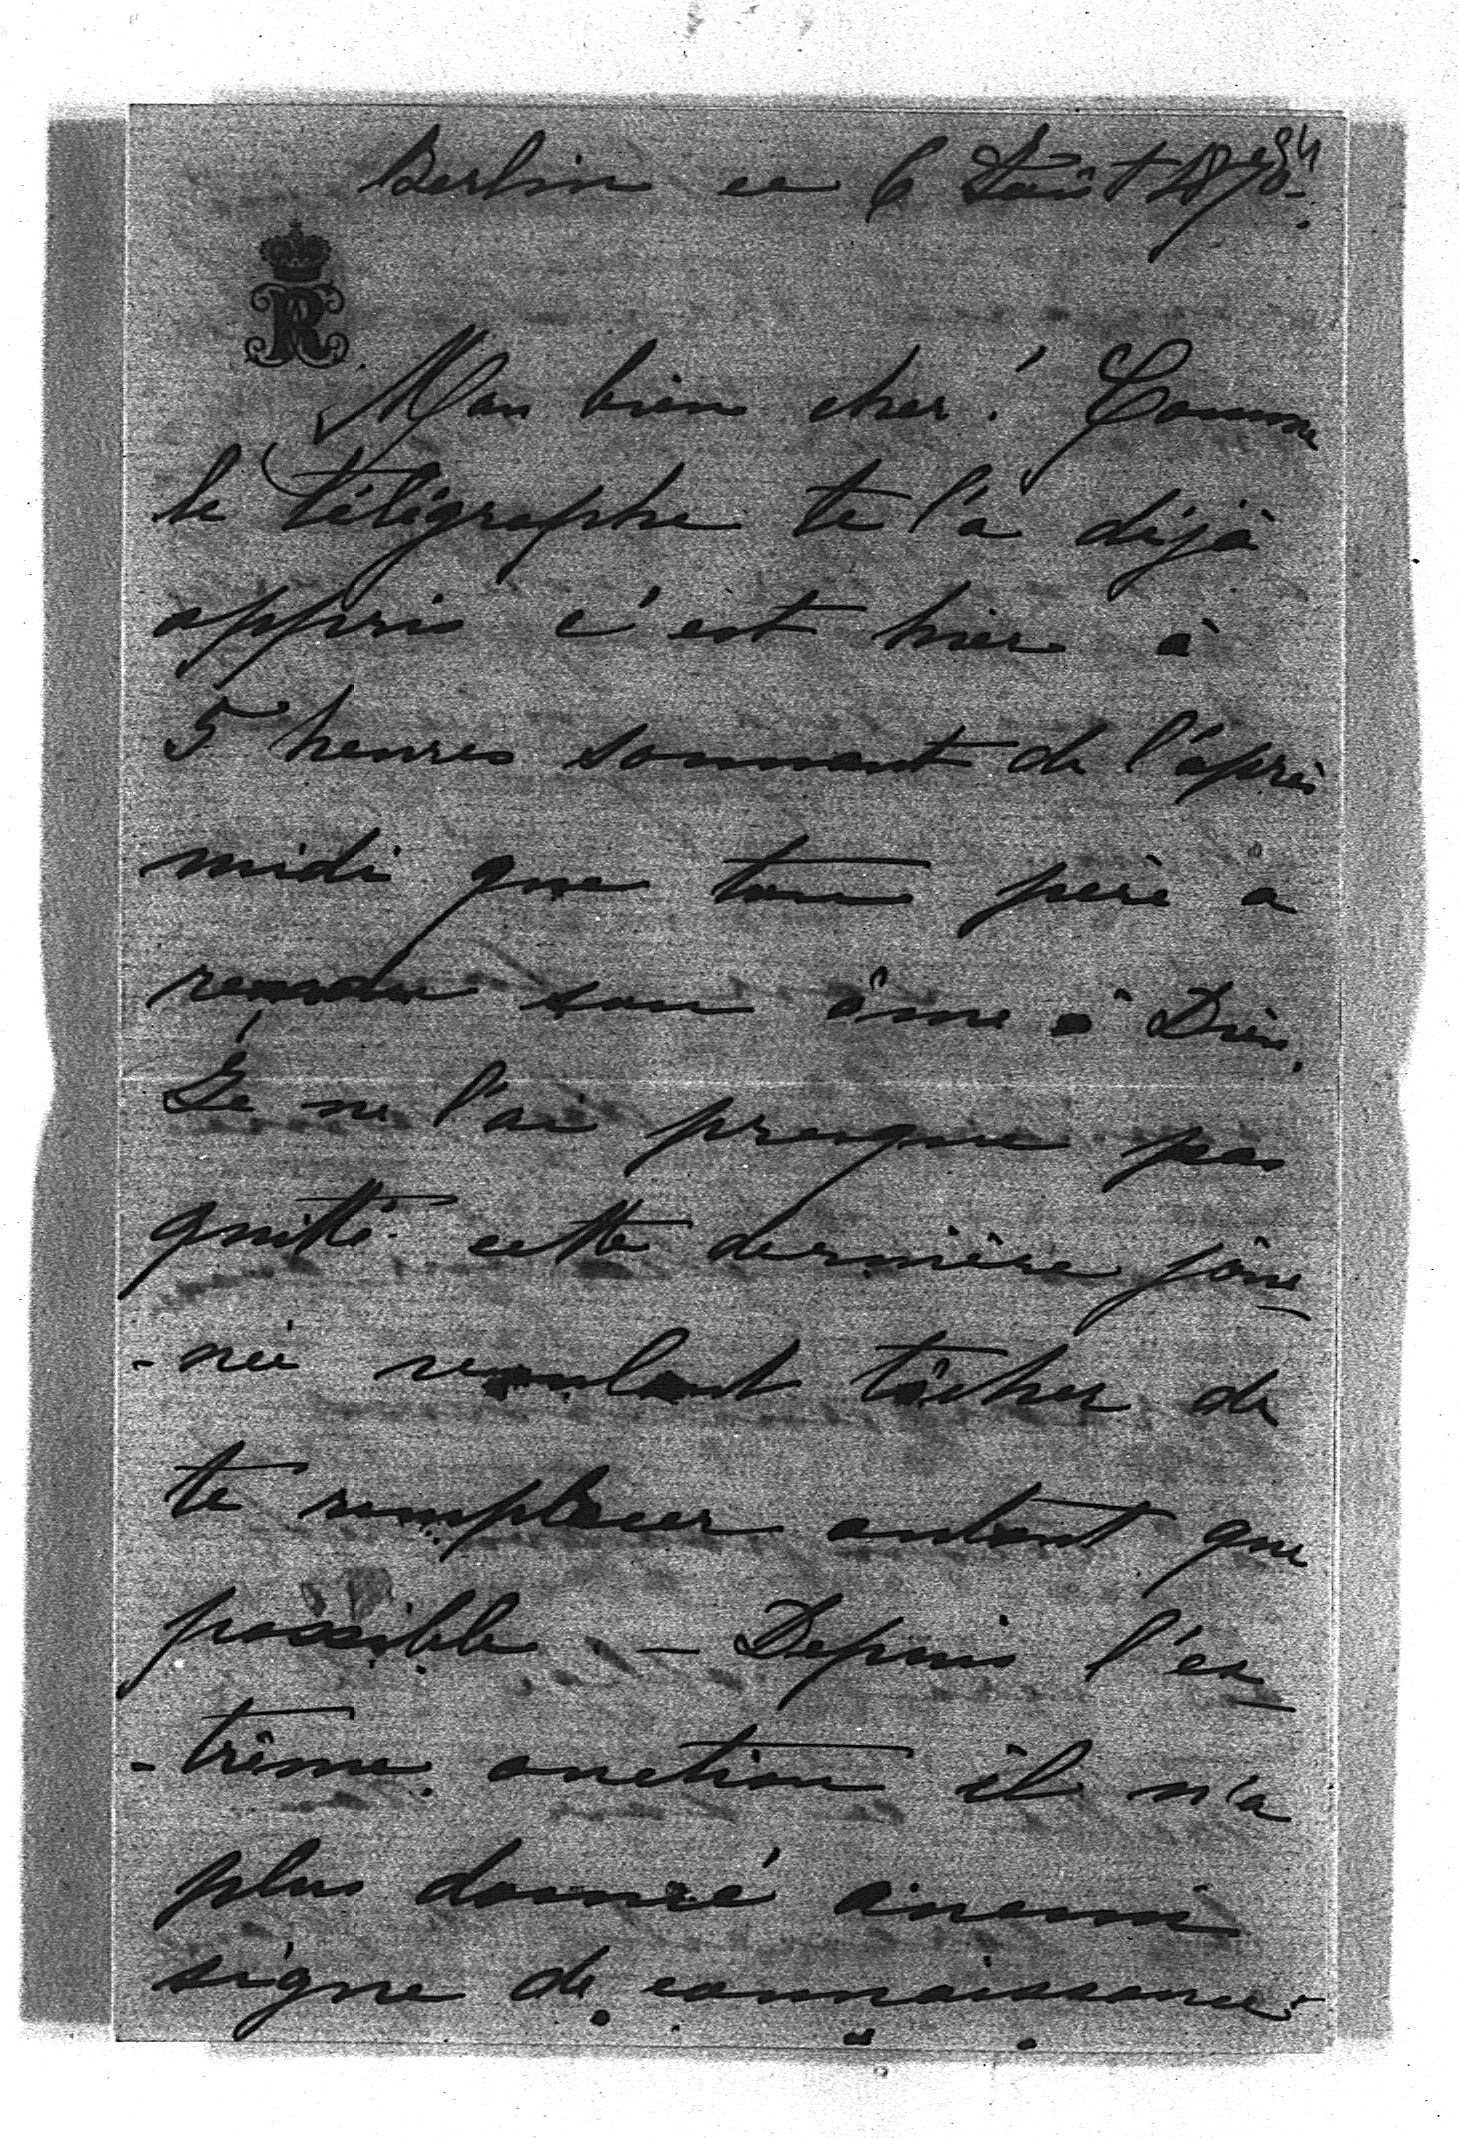 Berlin ce 6 Août
R
Mon bien cher! Comme
le télégraphe te l'a déjà
appris c'est hier à
5 heures sonnant de l'après
midi que ton père a
rendu son âme à Dieu.
Je ne l'ai presque pas
quitté cette dernière jour
-née voulant tâcher de
te remplacer autant que
possible – Depuis l'ex
-trême onction il n'a
plus donné aucun
signe de connaissance